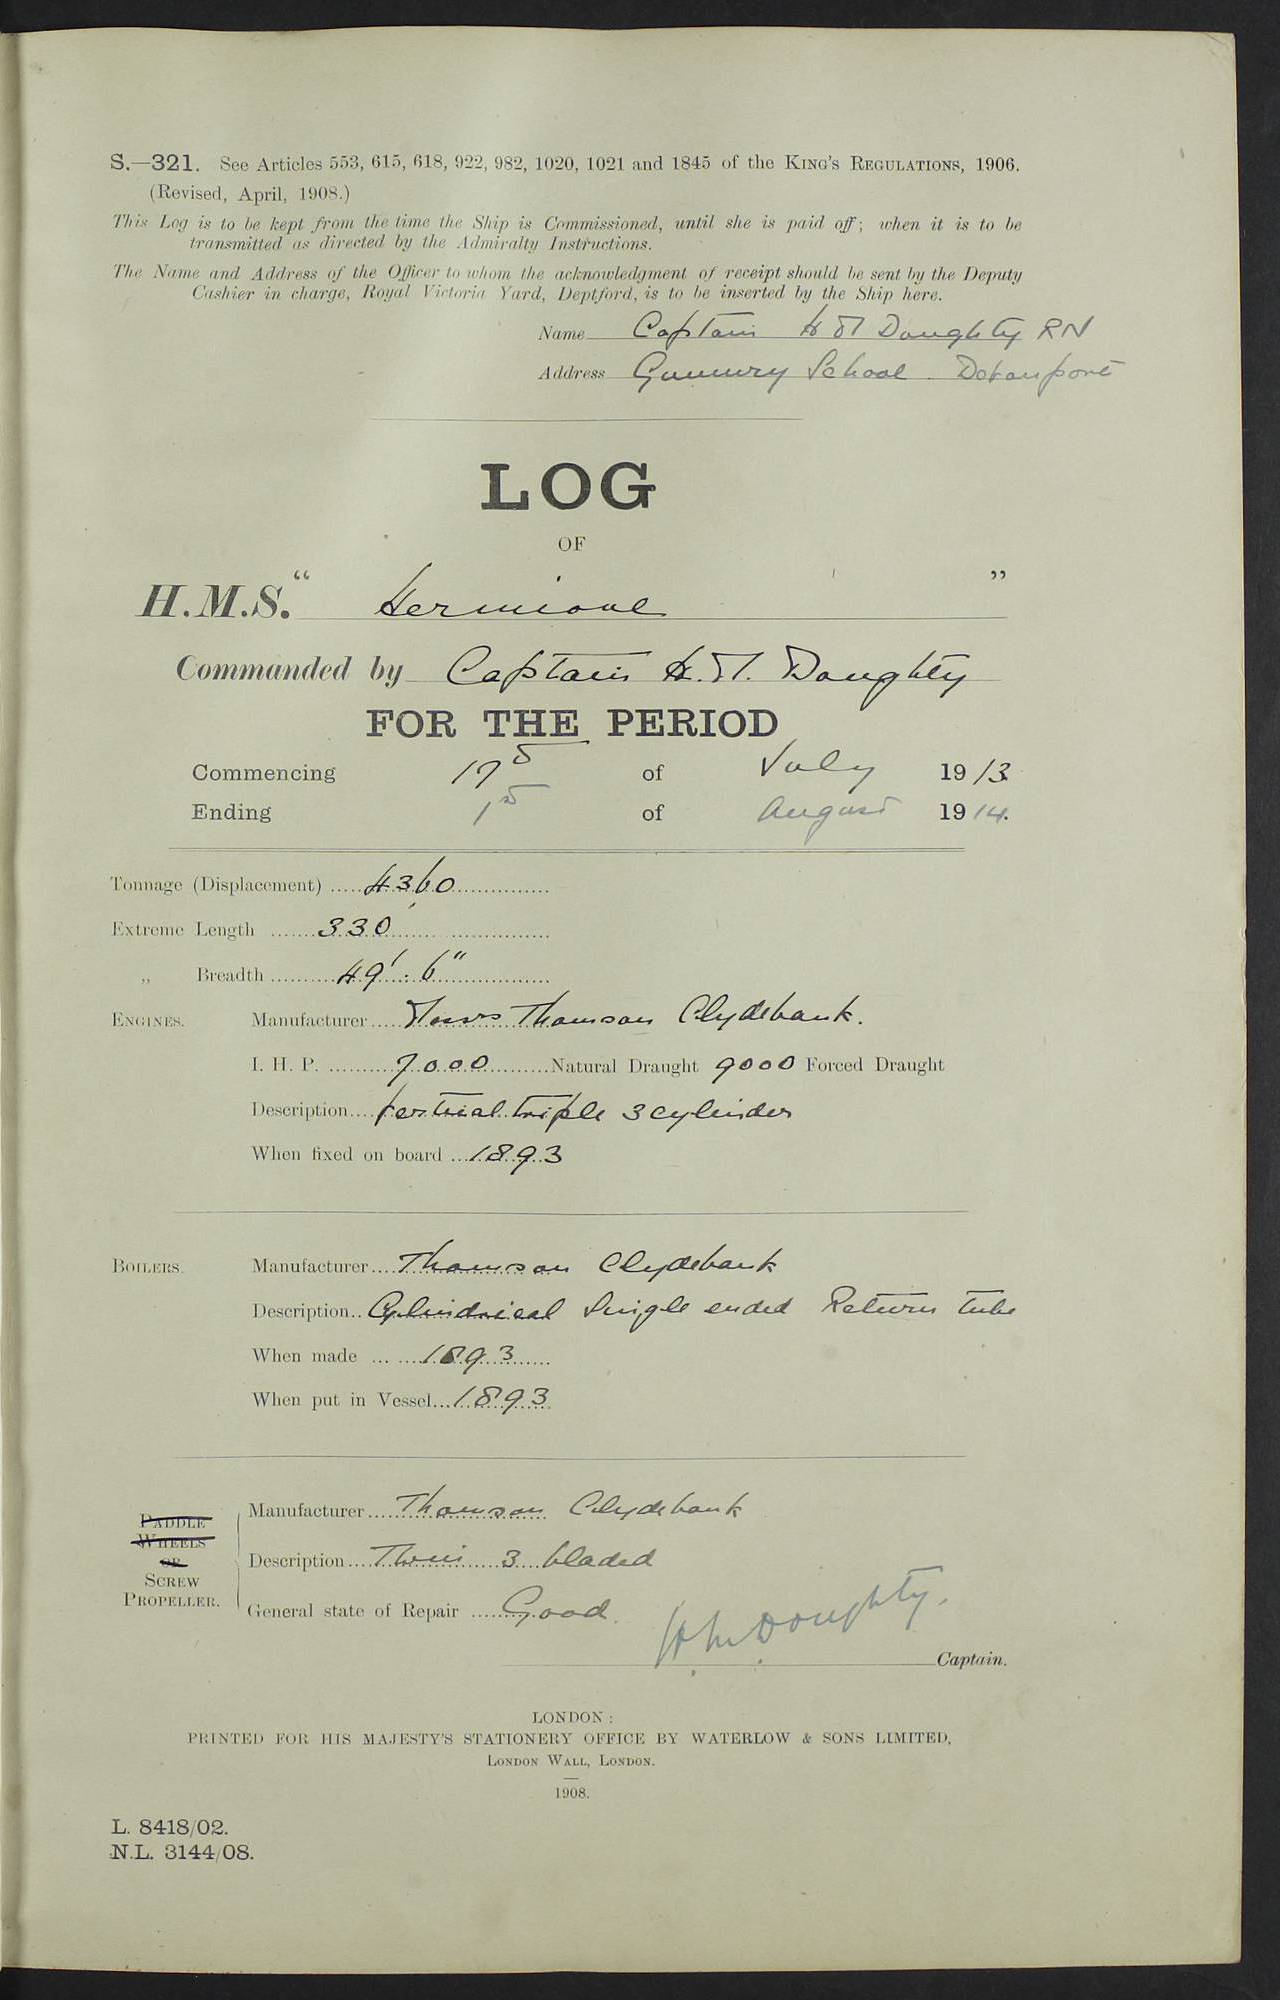 S.—321. See Articles 553, 615, 618, 922, 982, 1020, 1021 and 1845 of the KING'S REGULATIONS, 1906.
(Revised, April, 1908.)
This Log is to be kept from the time the Ship is Commissioned, until she is paid off; when it is to be
transmitted as directed by the Admiralty Instructions.
The Name and Address of the Officer to whom the acknowledgment of receipt should be sent by the Deputy
Cashier in charge, Royal Victoria Yard, Deptford, is to be inserted by the Ship here.
Name Captain H M Doughty RN
Address Gunnery School. Devonport
LOG
OF
H.M.S. "Hermione"
Commanded by Captain H. M. Doughty
FOR THE PERIOD
Commencing 17th of July 1913
Ending 1st of August 1914.
Tonnage (Displacement) 4360
Extreme Length 330'
„ Breadth 49' . 6"
ENGINES. Manufacturer Messrs Thomson Clydebank.
I. H. P. 7000 Natural Draught 9000 Forced Draught
Description Vertical triple 3 cylinder
When fixed on board 1893
BOILERS. Manufacturer Thomson Clydebank
Description Cylindrical Single ended Return tube
When made 1893
When put in Vessel 1893
PADDLE WHEELS OR SCREW PROPELLER.
Manufacturer Thomson Clydebank
Description Twin 3 bladed
General state of Repair Good.
H. M. Doughty.
Captain.
LONDON:
PRINTED FOR HIS MAJESTY'S STATIONERY OFFICE BY WATERLOW & SONS LIMITED,
LONDON WALL, LONDON.
1908.
L. 8418/02.
N.L. 3144/08.